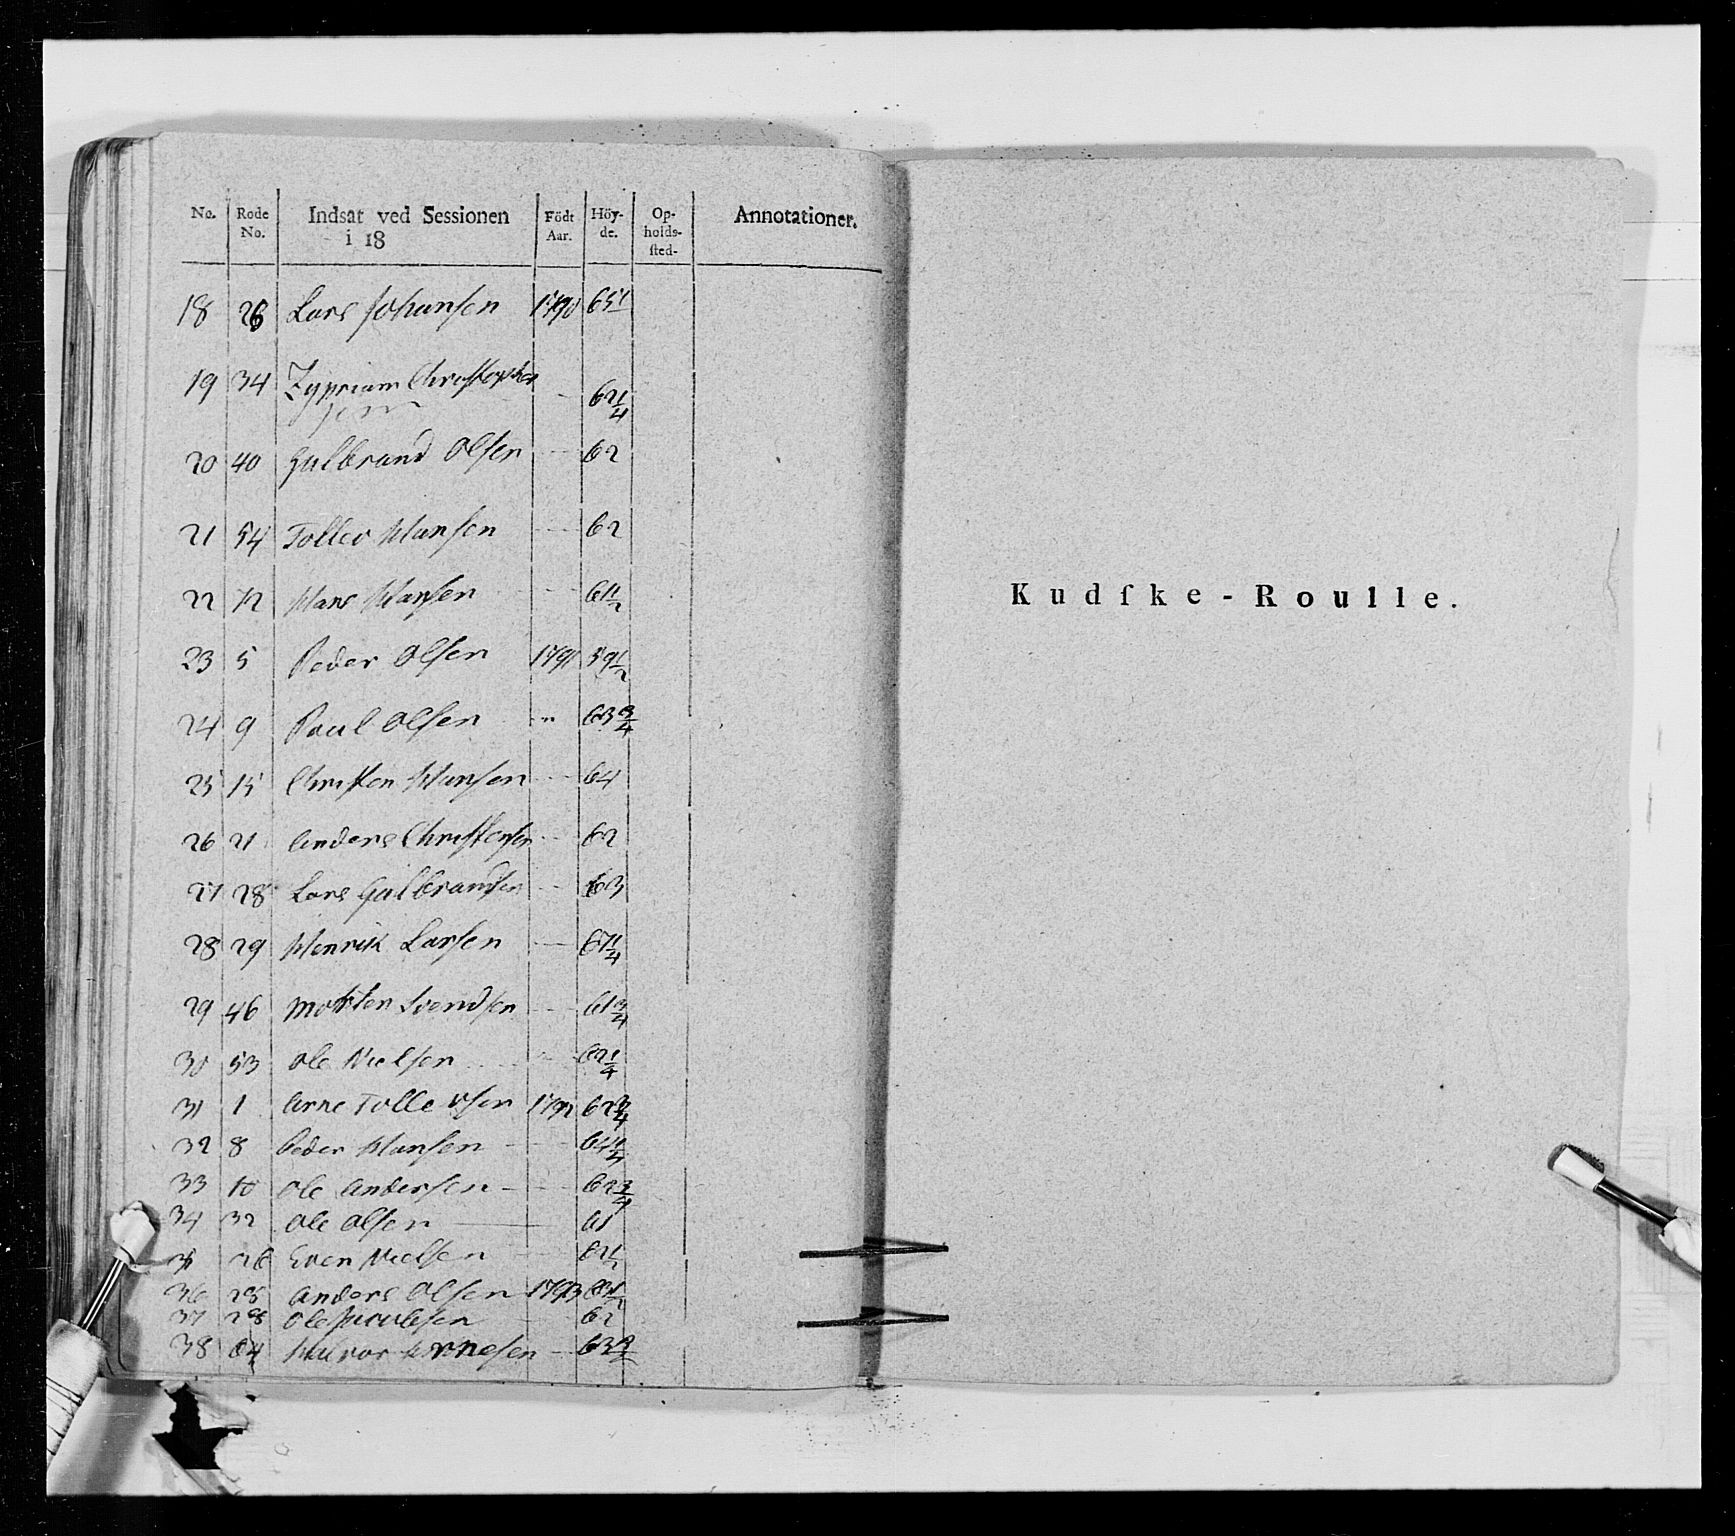 No. Rode No. Indsat ved Sessionen i 18 Födt Aar. Höy-de. Op-holds-sted- Annotationer.
18 26 Lars Johansen 1790 65 1/
19 34 Zyprian Christophersen — 62 1/4
20 40 Gulbrand Olsen — 62
21 54 Tollev Hansen — 62
22 72 Hans Hansen — 61 1/2
23 5 Peder Olsen 1791 59 1/2
24 9 Poul Olsen " 63 3/4
25 15 Christen Hansen — 64
26 21 Anders Christensen — 62
27 28 Lars Gulbrandsen — 63
28 29 Henrik Larsen — 67 1/4
29 46 Morten Svendsen — 61 3/4
30 53 Ole Nielsen " 62 1/4
31 1 Arne Tollevsen 1792 62 3/4
32 8 Peder Hansen — 64 1/4
33 10 Ole Andersen — 62 3/4
34 32 Ole Olsen — 61
35 Even Nielsen — 62 1/2
36 25 Anders Olsen 1793 63 1/2
37 28 Ole Jacobsen — 62
38 64 Halvor Arnesen — 63
Kudſke-Roulle.